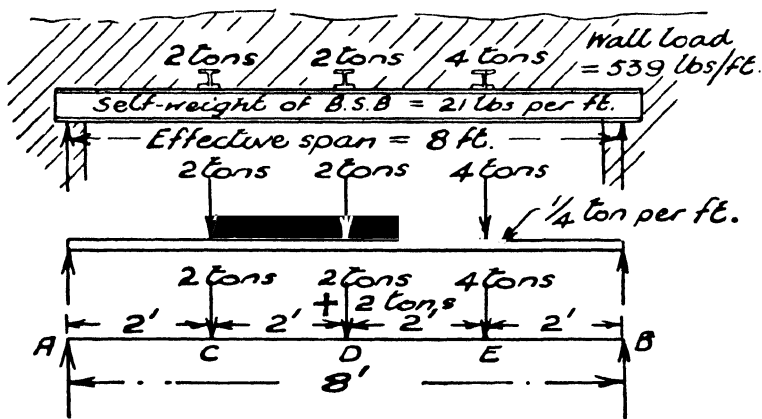 2 tons 2 tons 4 tons
Wall load
= 539 lbs/ft.
Self-weight of B.S.B = 21 lbs per ft.
Effective span = 8 ft.
2 tons 2 tons 4 tons
1/4 ton per ft.
2 tons 2 tons 4 tons
+ 2 tons
2' 2' 2' 2'
A C D E B
8'